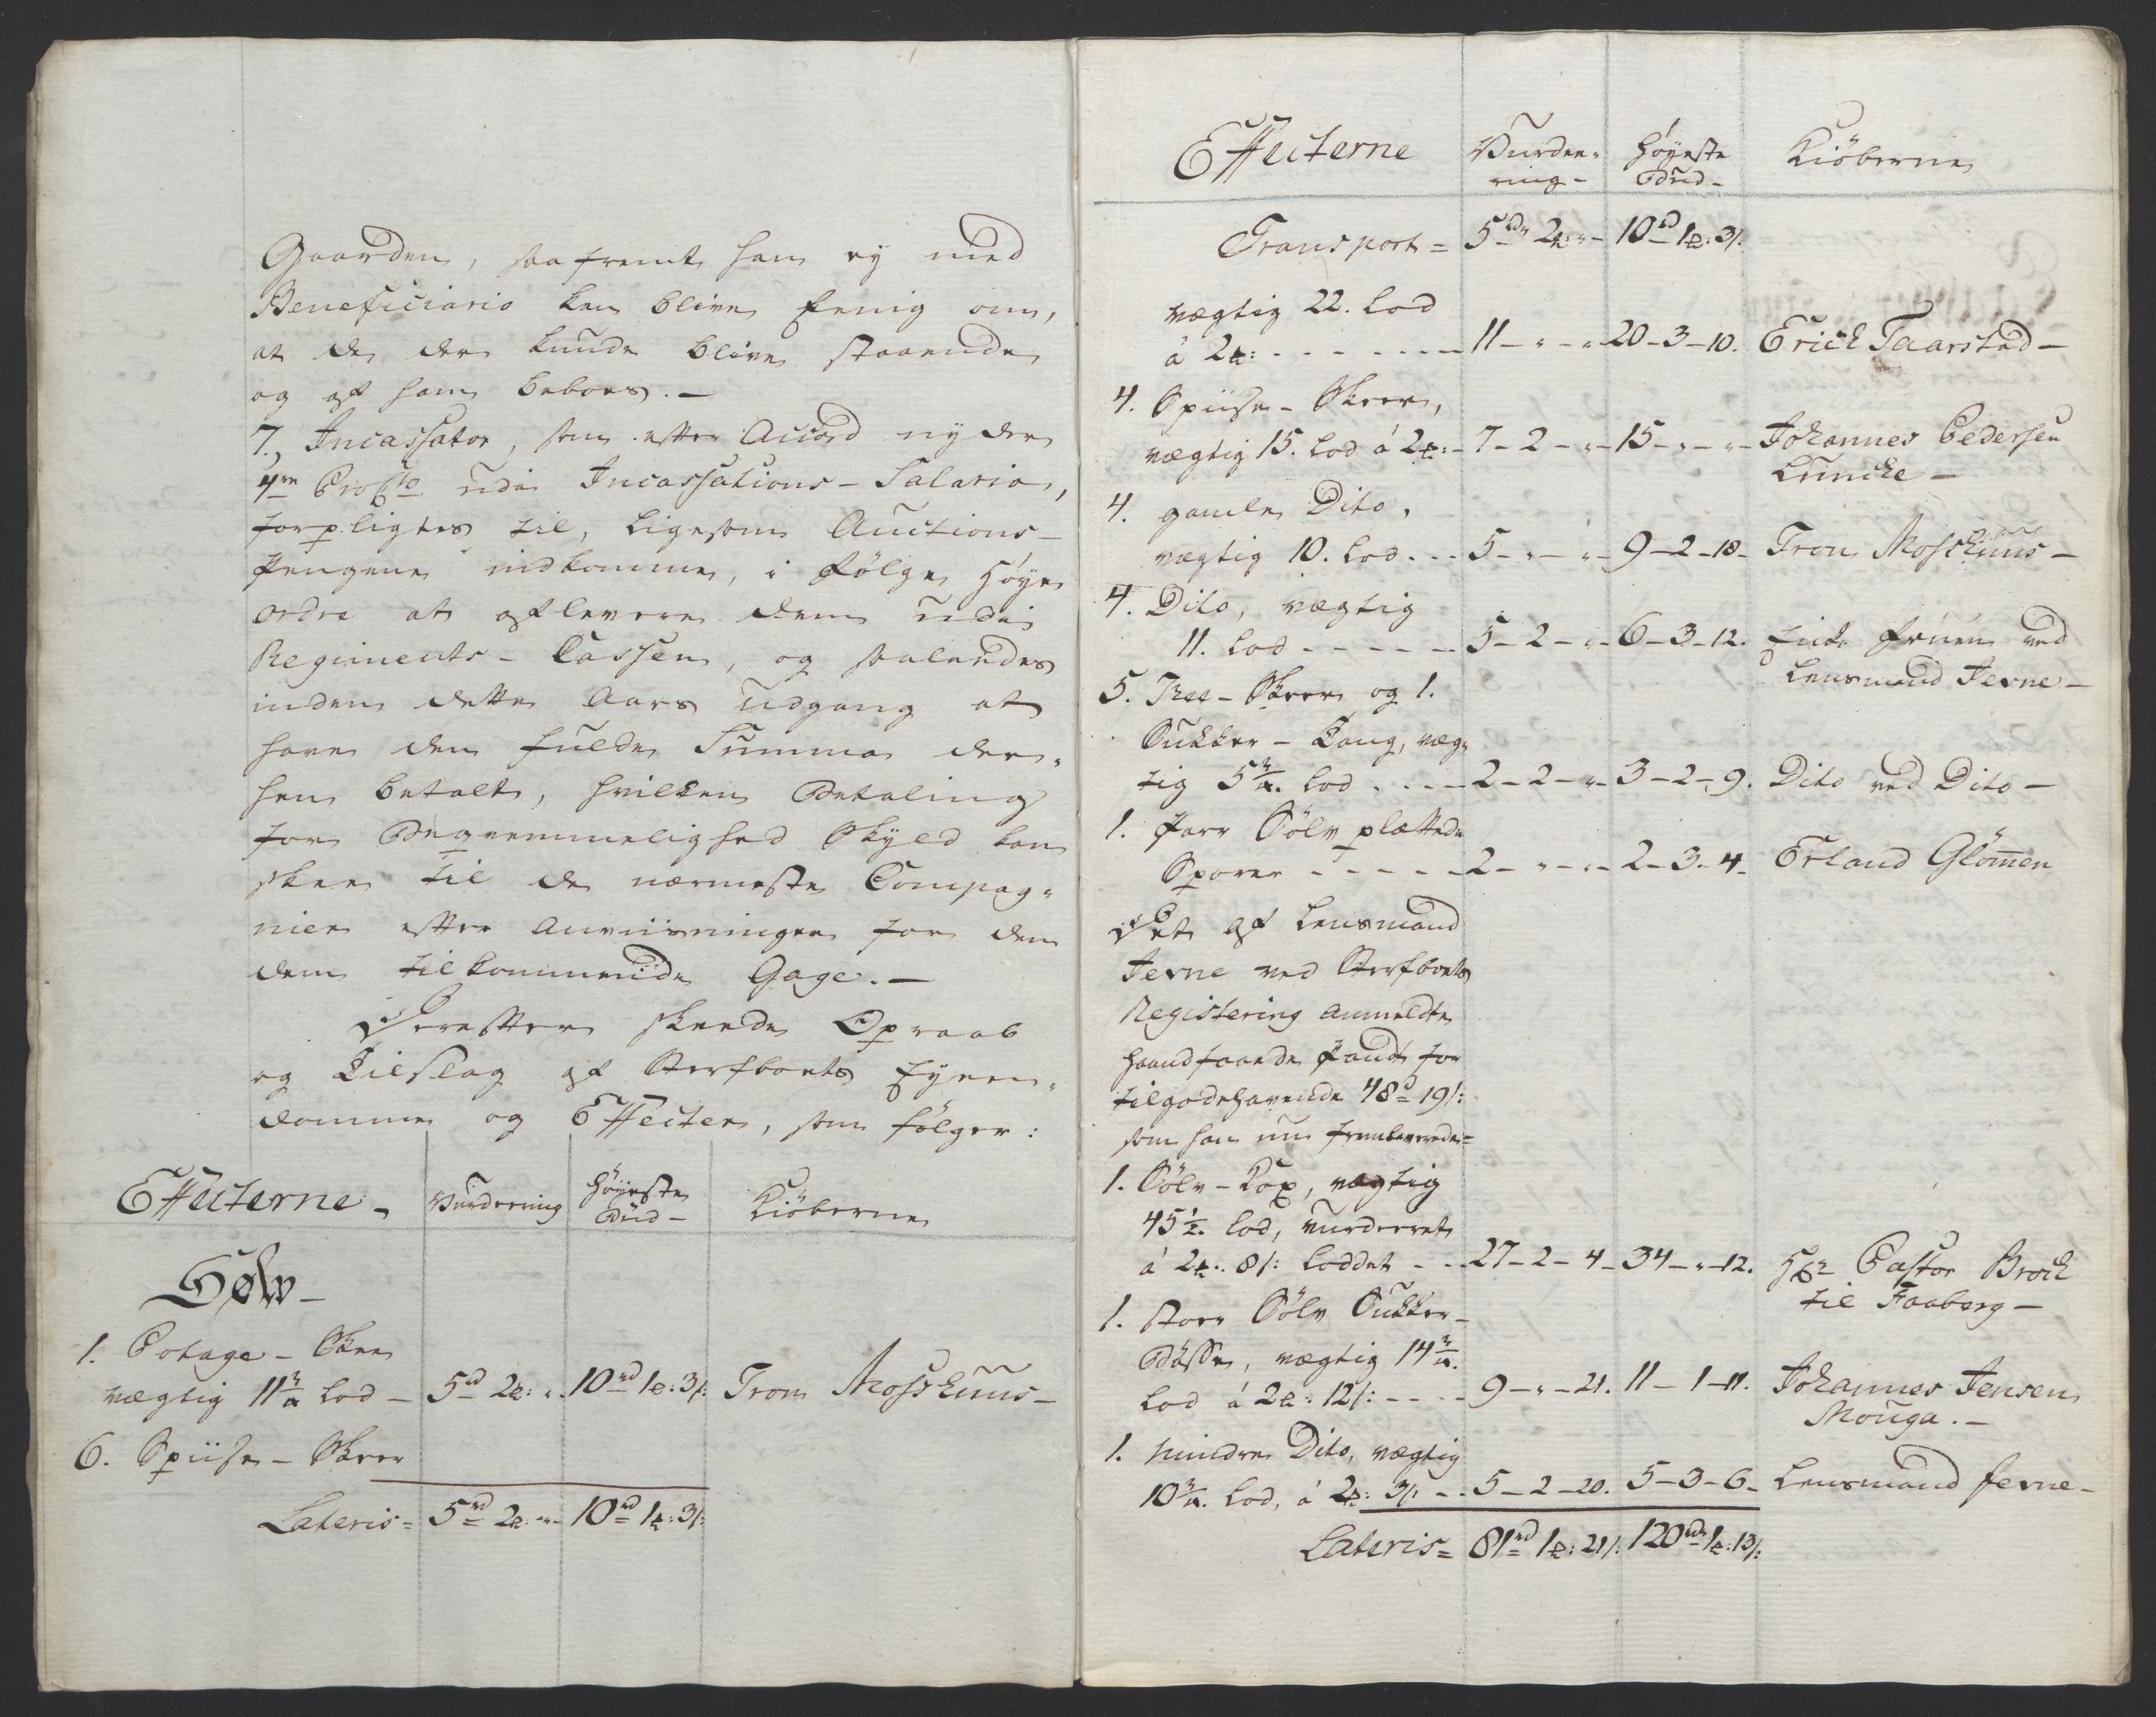 Gaarden, saafremt han ey med
Beneficiario kan blive Eenig om,
at de der kunde blive staaende
og af ham beboes. —
7., Incassator, som efter Accord nyder
4re ProCto udi Incassations-Salario,
forpligtes til, ligesom Auctions-
Pengene indkomme, i Følge Høye
Ordre at aflevere dem udi
Regiments-Cassen, og saaledes
inden dette Aars Udgang at
have den fulde Summa der-
hen betalt, hvilken Betaling
for Beqvemmelighed Skyld kan
skee til de nærmeste Compag-
nier efter Anviisninger for den
dem tilkommende Gage. —
Derefter skeede Opraab
og Tilslag af Sterfboets Eyen-
domme og Effecter, som følger:
Effecterne - Vurdering Høyeste Bud - Kiøberne
Sølv -
1. Potage-Skee
vægtig 11¾ Lod - 5rd 2 ℔: „ 10rd 1 ℔: 3 s: Tron Moshuus -
6. Spiise-Skeer
Lateris = 5rd 2 ℔: „ - 10rd 1 ℔: 3 s:
Effecterne Vurdee- ring - Høyeste Bud - Kiøberne
Transport = 5rd 2 ℔: „ - 10rd 1 ℔: 3 s:
vægtig 22. Lod
à 2 ℔: - - - - 11 - „ - „ - 20 - 3 - 10. Erick Taarstad -
4. Spiise-Skeer,
vægtig 15. Lod à 2 ℔: - 7 - 2 - „ - 15 - „ - „ - Johannes Pedersen
Luncke -
4. gamle Dito,
vægtig 10. Lod - - 5 - „ - „ - 9 - 2 - 18 - Tron Moshuus -
4. Dito, vægtig
11. Lod - - - - 5 - 2 - „ - 6 - 3 - 12. Enke Fruen ved
Lensmand Jevne -
5. Thee-Skeer og 1.
Sukker-Tang, væg-
tig 5¾. Lod - - - 2 - 2 - „ - 3 - 2 - 9. Dito ved Dito -
1. Parr Sølv plettede
Sporer - - - - 2 - „ - „ - 2 - 3 - 4 - Erland Glömen
Det af Lensmand
Jevne ved Sterfboets
Registering anmeldte
haandfaaede Pandt for
tilgodehavende 48d 19 s:
som han nu fremleverede =
1. Sølv-Kop, vægtig
45½. Lod, vurderet
à 2 ℔: 8 s: Loddet - - 27 - 2 - 4 - 34 - „ - 12. Hr Pastor Brock
til Faaberg -
1. stoer Sølv Sukker-
Dösse, vægtig 14¾.
Lod à 2 ℔: 12 s: - - 9 - „ - 21. 11 - 1 - 11. Johannes Jensen
Mouga. -
1. mindre Dito, vægtig
10¾. Lod, à 2 ℔: 3 s: - - 5 - 2 - 20. 5 - 3 - 6 - Lensmand Jevne -
Lateris = 81rd 1 ℔: 21 s: 120rd 1 ℔: 13 s: